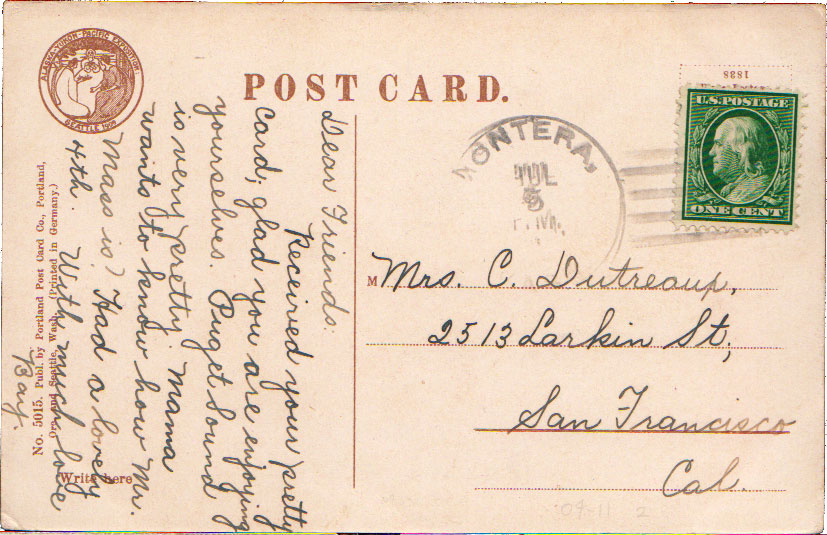 ALASKA-YUKON-PACIFIC EXPOSITION
SEATTLE 1909
POST CARD.
1838
U.S. POSTAGE
ONE CENT
MONTERA,
JUL
5
P.M.
Dear Friends:
Received your pretty
card; glad you are enjoying
yourselves. Puget Sound
is very pretty. Mama
wants to know how Mr.
Mass is? Had a lovely
4th. With much love
Bay.
M Mrs. C. Dutreaup,
2513 Larkin St,
San Francisco
Cal.
No. 5015. Publ. by Portland Post Card Co., Portland,
Ore. and Seattle, Wash. (Printed in Germany.)
Write here
09-11 2